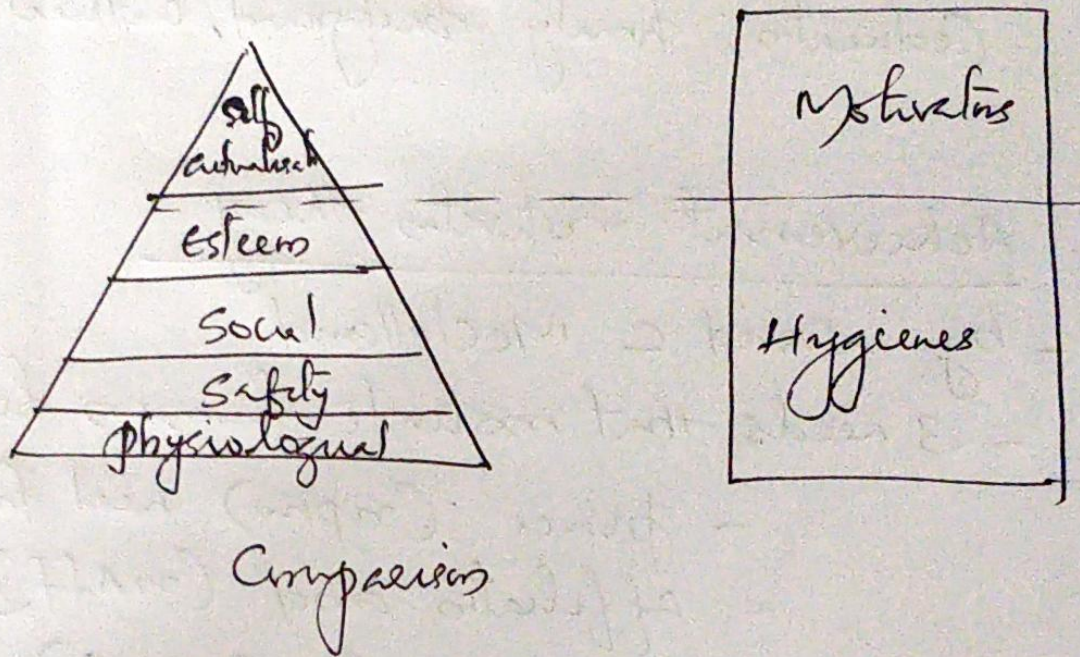 Self
actualisat
Esteem
Social
Safety
Physiological
Motivators
Hygienes
Comparison